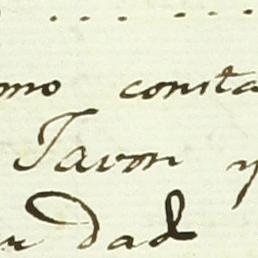 omo consta
Tavon y
dad